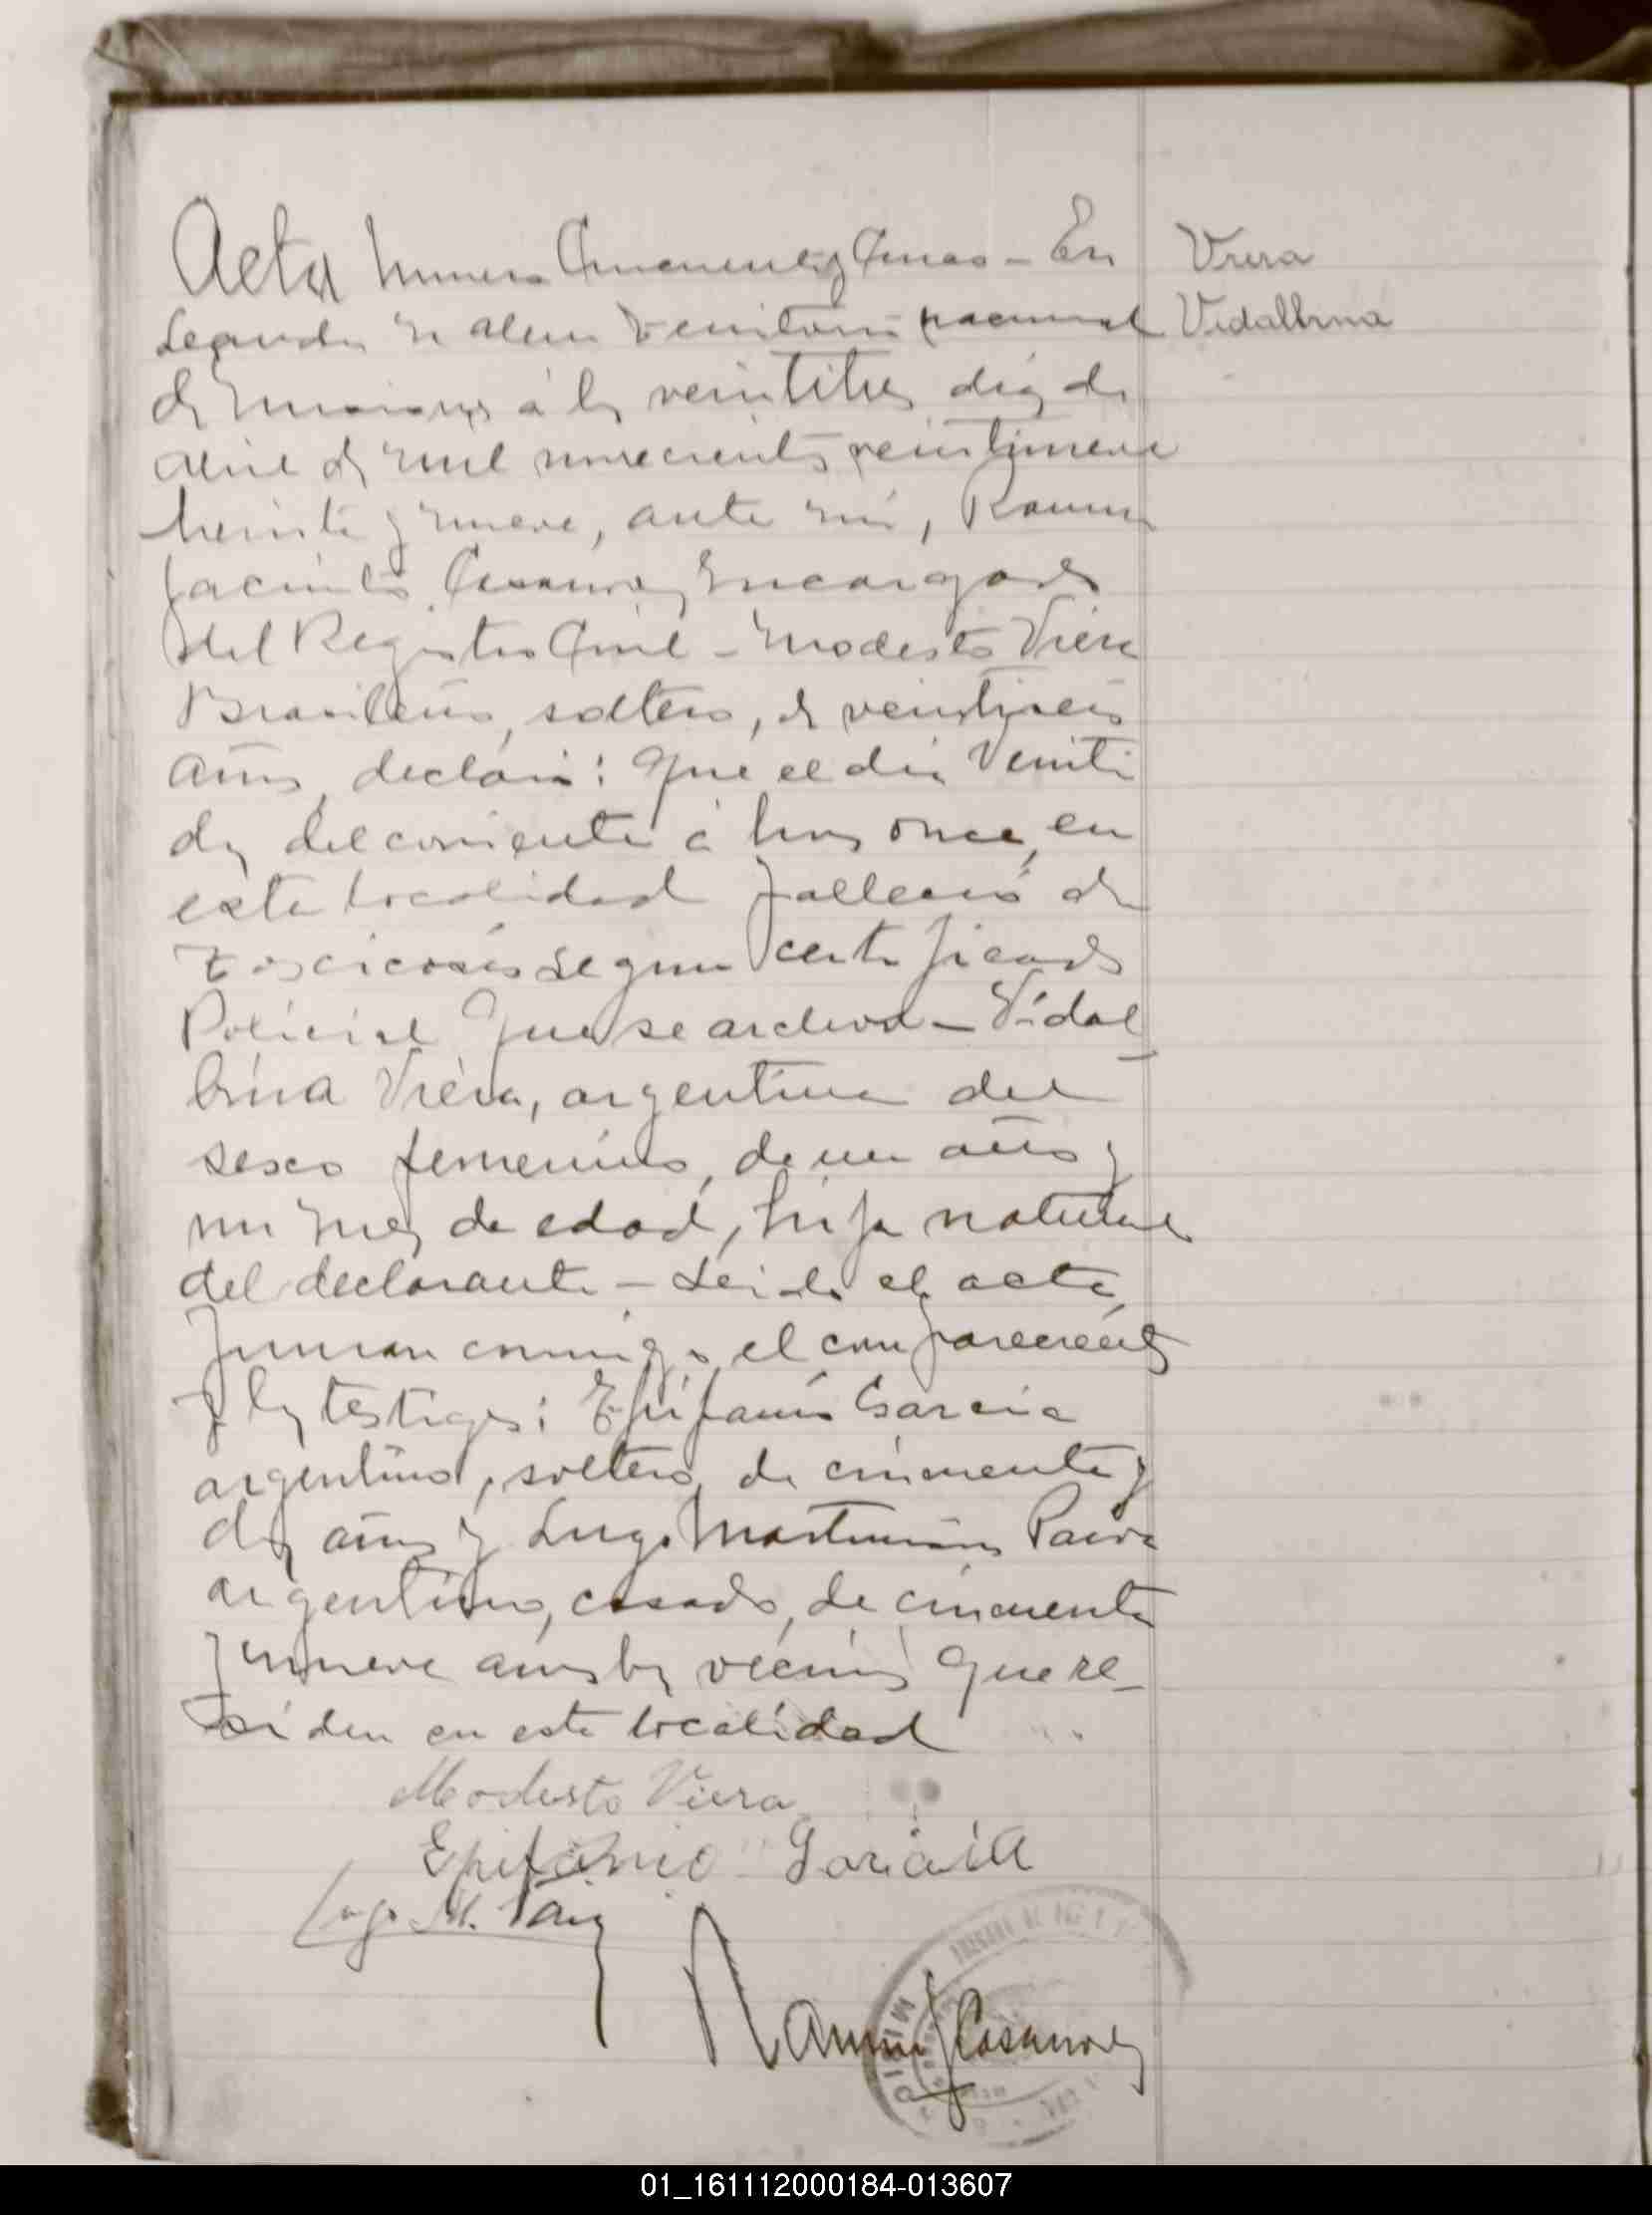 Acta Numero Cincuenta y Cinco - En
Leandro N Alem Territorio nacional
de Misiones á los veintitres dias de
de mil novecientos veintinueve
veinte y nueve, ante mi, Ramon
Jacinto Casanova, Encargado
del Registro Civil - Modesto Viera
Brasileño, soltero, de veintiseis
años, declaró: Que el dia Veinti
dos del corriente á horas once, en
esta localidad falleció de
segun certificado
Policial que se archiva - Vidal
brina Viera, argentina del
sexo femenino, de un año y
un mes de edad, hija natural
del declarante - Leida el acta,
firman conmigo el compareciente
y los testigos: Epifanio Garcia
argentino, soltero, de cincuenta y
dos años y Lugo Martiniano Paiva
argentino, casado, de cincuenta
y nueve años, vecinos que re-
siden en esta localidad
Modesto Viera
Epifanio Garcia
Lugo M. Paiva
Ramon J Casanova
Viera
Vidalbrina
01_161112000184-013607